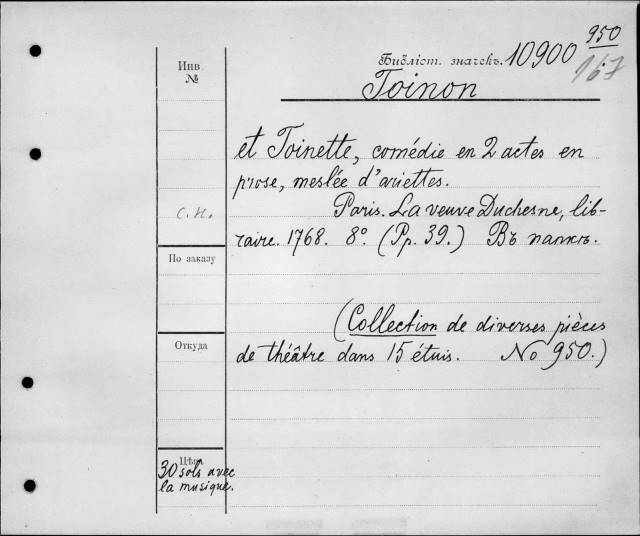 950
Библіот. значекъ. 10900
167
Инв.
№
Toinon
et Toinette, comédie en 2 actes en
prose, meslée d'ariettes.
с.н.
Paris. La veuve Duchesne, lib-
raire. 1768. 8º. (Pp. 39.) Въ папкѣ.
По заказу
(Collection de diverses pièces
Откуда
de théâtre dans 15 étuis. No 950.)
Цѣна
30 sols avec
la musique.